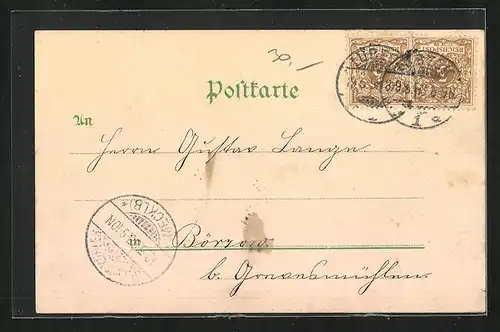 30.
REICHSPOST
Postkarte
An
Herrn Gustav Lange.
in
Börzow
b. Grevesmühlen.
(MECKLB)*